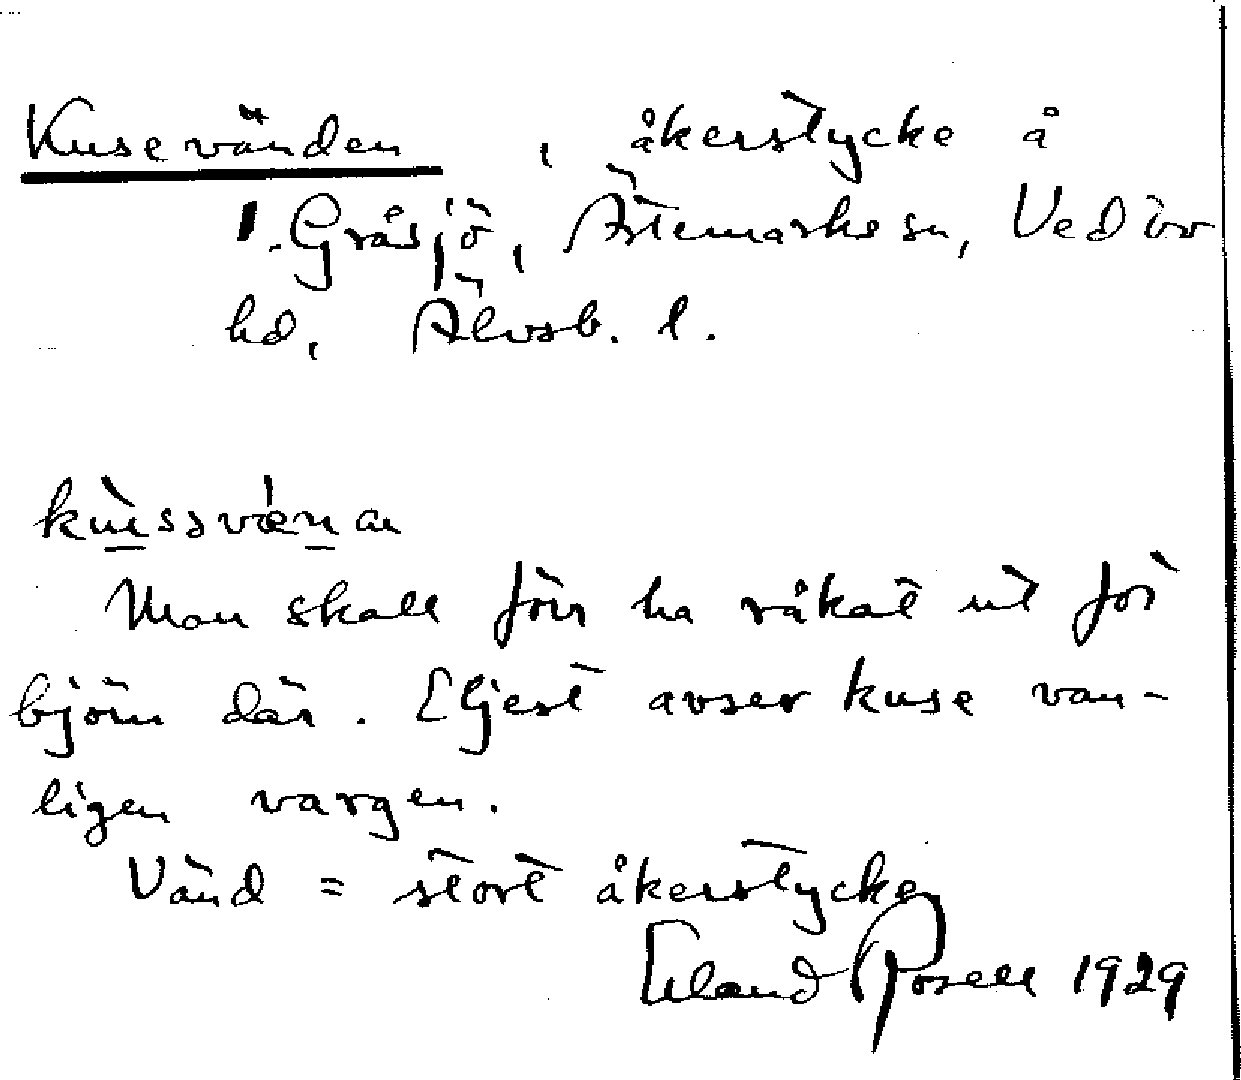 Kusevänden, åkerstycke å
1. Gråsjö, Ärtemarks sn, Vedbo
hd, Älvsb. l.
Man skall förr ha råkat ut för
björn där. Eljest avser kuse van-
ligen vargen.
Vänd = stort åkerstycke
Erland Rosell 1929